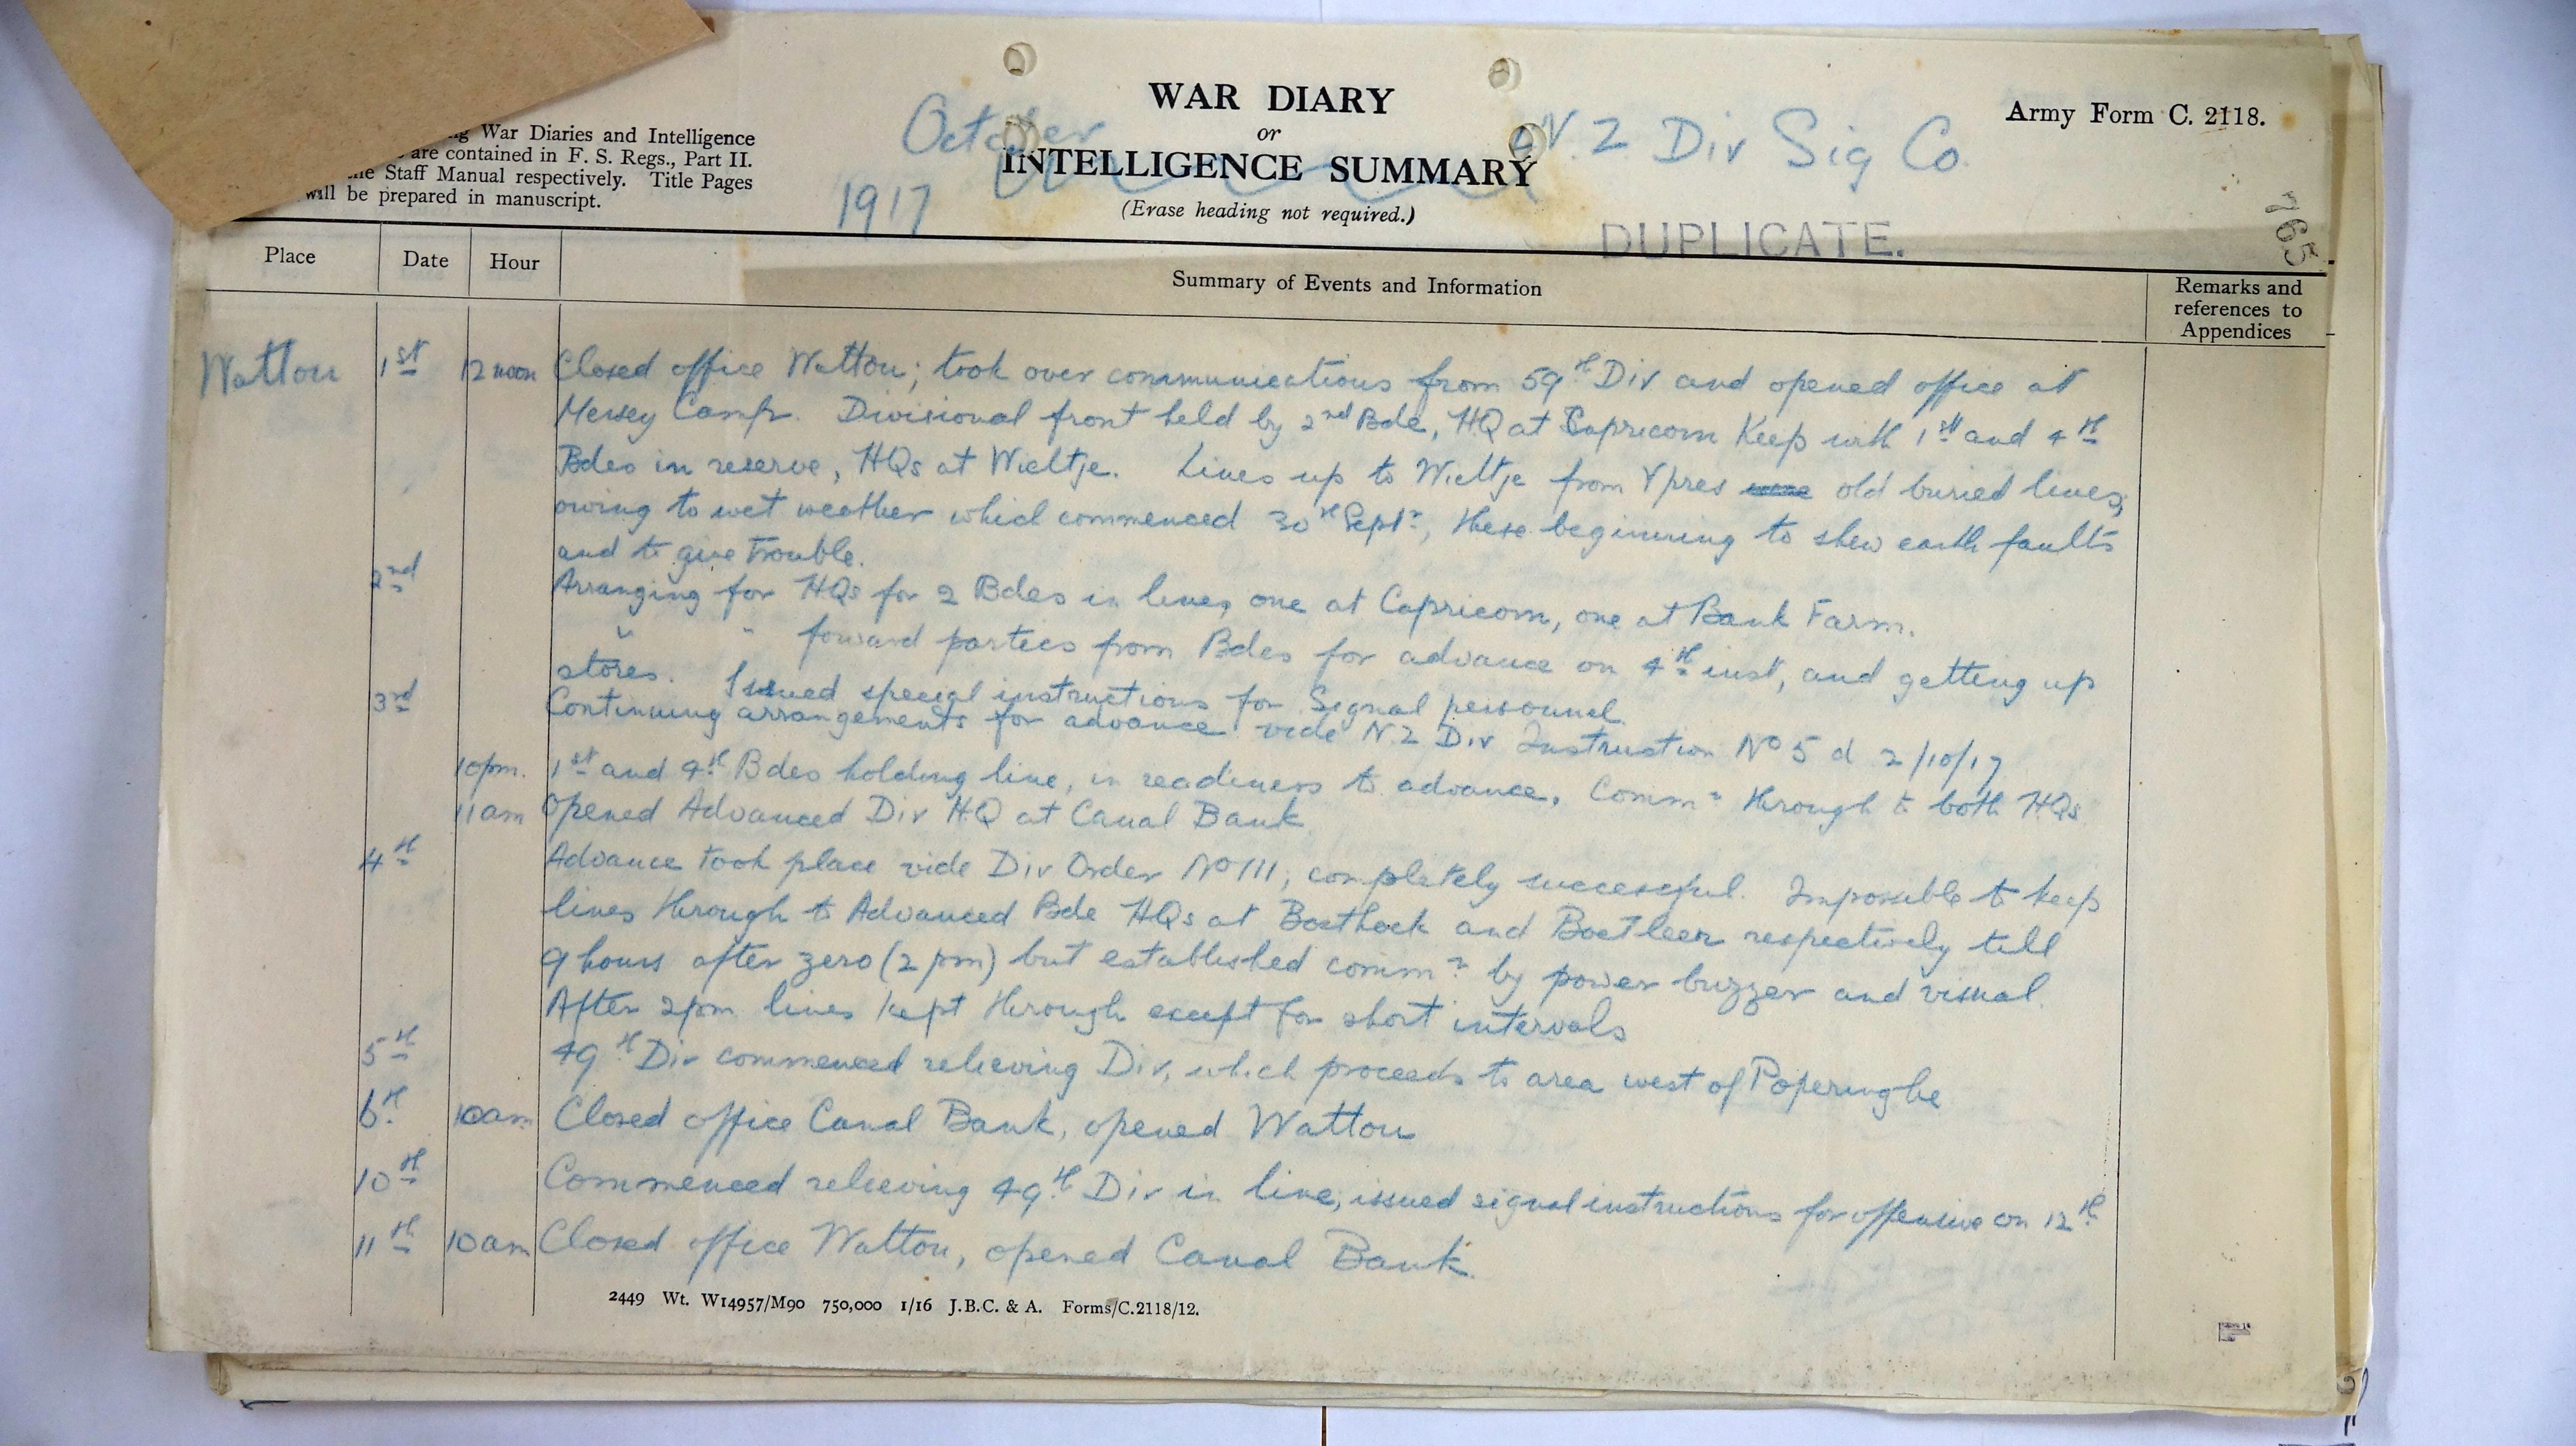 WAR DIARY
or
INTELLIGENCE SUMMARY
(Erase heading not required.)
October
1917
N.Z Div Sig Co
Army Form C. 2118.
DUPLICATE.
765
War Diaries and Intelligence
are contained in F. S. Regs., Part II.
Staff Manual respectively. Title Pages
will be prepared in manuscript.
Place Date Hour Summary of Events and Information Remarks and references to Appendices
Watton 1st 12 noon Closed office Watton; took over communications from 59th Div and opened office at
Mersey Camp. Divisional front held by 2nd Bde, HQ at Capricorn Keep with 1st and 4th
Bdes in reserve, HQs at Wieltje. Lines up to Wieltje from Ypres were old buried lines,
owing to wet weather which commenced 30th Septr, these beginning to shew earth faults
and to give trouble.
2nd Arranging for HQs for 2 Bdes in lines, one at Capricorn, one at Bank Farm.
" " forward parties from Bdes for advance on 4th inst, and getting up
stores. Issued special instructions for Signal personnel
3rd Continuing arrangements for advance vide N.Z Div Instruction No 5 d 2/10/17
10pm. 1st and 4th Bdes holding line, in readiness to advance, Commn through to both HQs
11am Opened Advanced Div HQ at Canal Bank
4th Advance took place vide Div Order No 111, completely successful. Impossible to keep
lines through to Advanced Bde HQs at Bosthoek and Boetleer respectively till
9 hours after zero (2 pm) but established commn by power buzzer and visual.
After 2pm lines kept through except for short intervals
5th 49th Div commenced relieving Div, which proceeds to area west of Poperinghe
6th 10am Closed office Canal Bank, opened Watton
10th Commenced relieving 49th Div in line, issued signal instructions for offensive on 12th
11th 10am Closed office Watton, opened Canal Bank.
2449 Wt. W14957/M90 750,000 1/16 J.B.C. & A. Forms/C.2118/12.